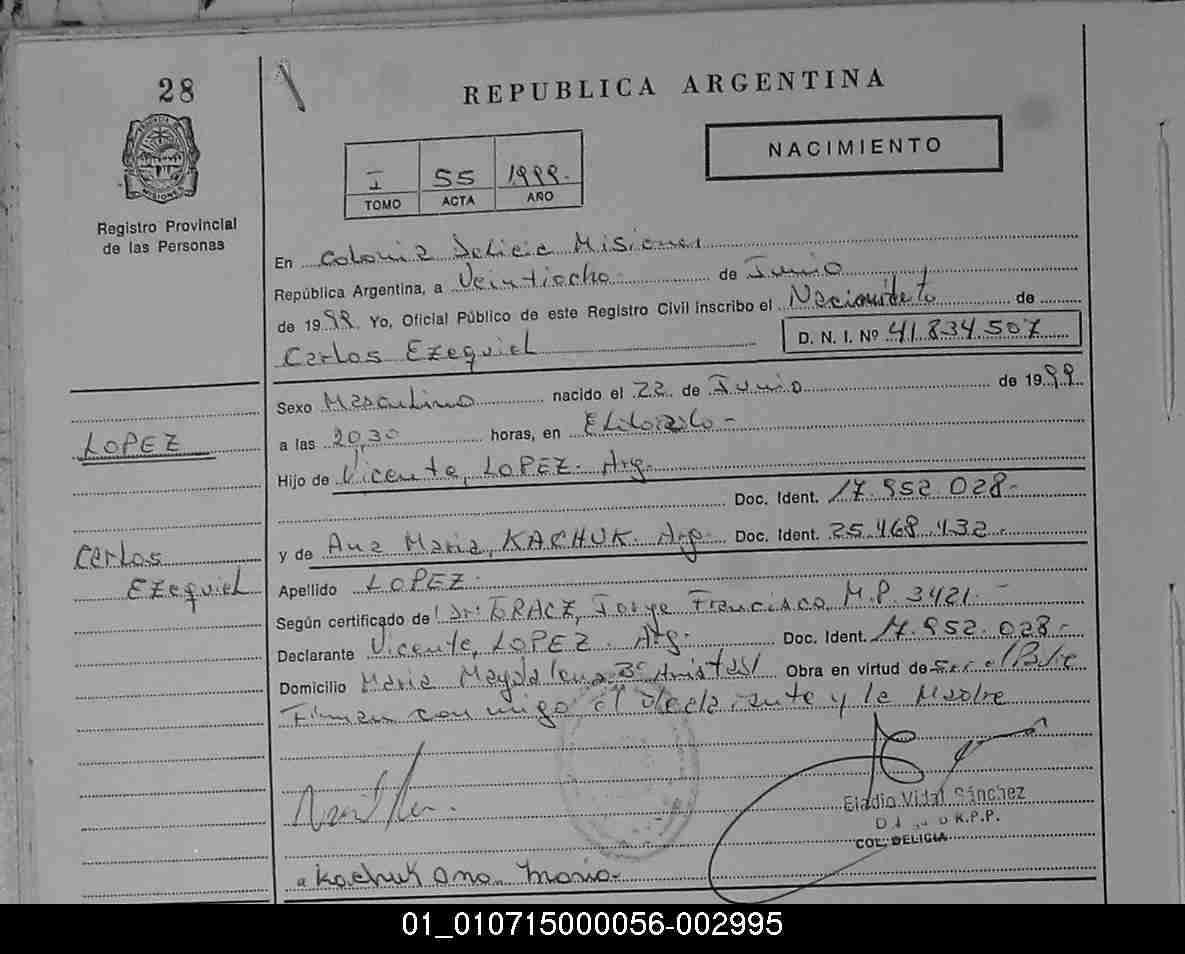 28
REPUBLICA ARGENTINA
PROVINCIA DE MISIONES
Registro Provincial
de las Personas
NACIMIENTO
I 55 1999.
TOMO ACTA AÑO
En Colonia Delicia Misiones
República Argentina, a Veintiocho de Junio
de 1999. Yo, Oficial Público de este Registro Civil inscribo el Nacimiento de
Carlos Ezequiel D. N. I. Nº 41.834.507
Sexo Masculino nacido el 22 de Junio de 1999
LOPEZ
a las 20,30 horas, en Eldorado -
Hijo de Vicente, LOPEZ. Arg.
Doc. Ident. 17.952.028-
Carlos
Ezequiel
y de Ana Maria, KACHUK. Arg. Doc. Ident. 25.468.432-
Apellido LOPEZ.
Según certificado de Dr. Jorge Francisco, M.P. 3421-
Declarante Vicente, LOPEZ. Arg. Doc. Ident. 17.952.028-
Domicilio Maria Magdalena Obra en virtud de Ser el Padre
Firman conmigo el declarante y la Madre
Eladio Vidal Sánchez
R.P.P.
COL. DELICIA
Kachuk Ana Maria-
01_010715000056-002995